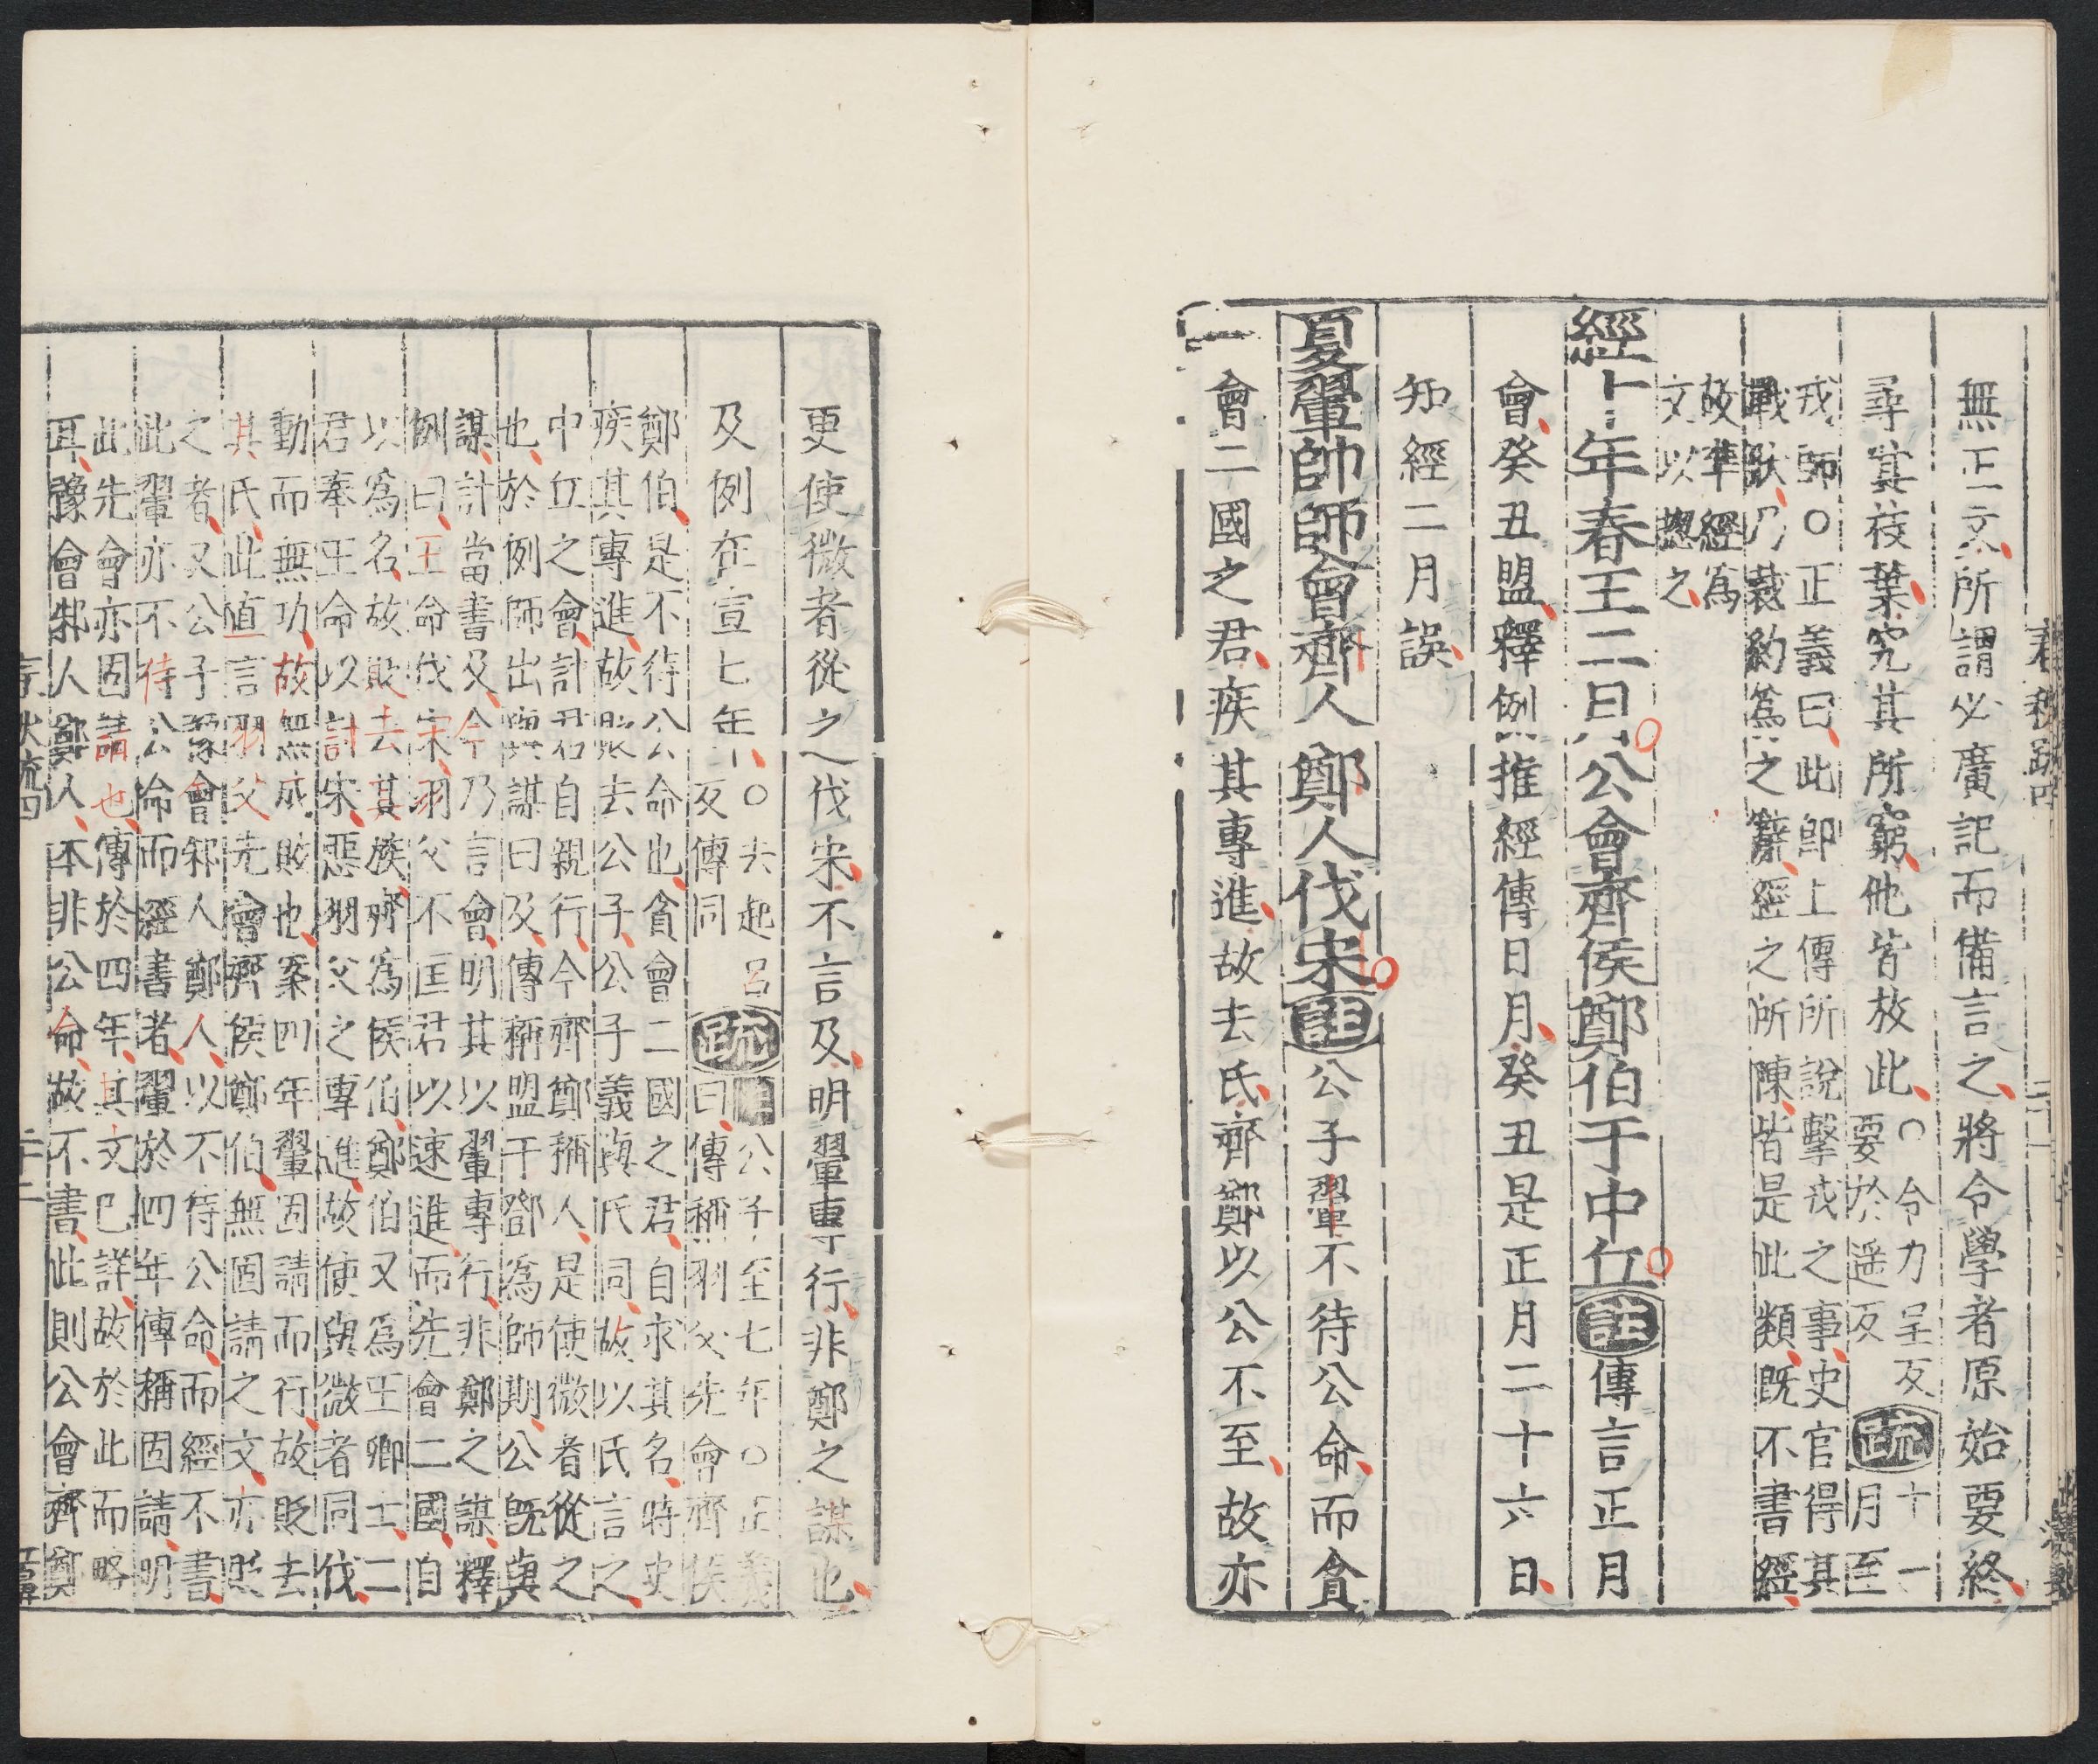 無正文所謂必廣記而備言之將令學者原始要終
尋其枝葉究其所窮他皆放此○令力呈反
要於遥反疏十一
月至
戎師○正義曰此即上傳所說擊戎之事史官得其
戰狀乃裁約爲之辭經之所陳皆是此類既不書經
故準經爲
文以揔之
經十年春王二月公會齊侯鄭伯于中丘註傳言正月
會癸丑盟釋例推經傳日月癸丑是正月二十六日
知經二月誤
夏翬帥師會齊人鄭人伐宋註公子翬不待公命而貪
會二國之君疾其專進故去氏齊鄭以公不至故亦
更使微者從之伐宋不言及明翬專行非鄭之謀也
及例在宣七年○去起呂
反傳同疏註公子至七年○正義
曰傳稱羽父先會齊侯
鄭伯是不待公命也貪會二國之君自求其名時史
疾其專進故貶去公子公子義與氏同故以氏言之
中丘之會計君自親行今齊鄭稱人是使微者從之
也於例師出與謀曰及傳稱盟于鄧爲師期公旣與
謀計當書及今乃言會明其以翬專行非鄭之謀釋
例曰王命伐宋羽父不匡君以速進而先會二國自
以爲名故貶去其族齊爲侯伯鄭伯又爲王卿士二
君奉王命以討宋惡羽父之專進故使與微者同伐
動而無功故無成敗也案四年翬固請而行故貶去
其氏此直言羽父先會齊侯鄭伯無固請之文亦貶
之者又公子豫會邾人鄭人以不待公命而經不書
此翬亦不待公命而經書者翬於四年傳稱固請明
此先會亦固請也傳於四年其文已詳故於此而略
耳豫會邾人鄭人本非公命故不書此則公會齊鄭